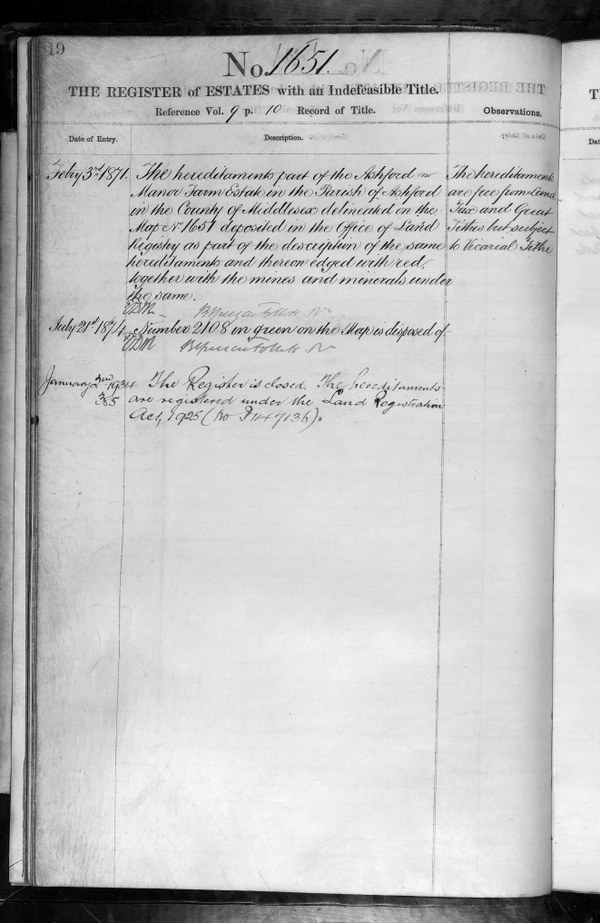 19
No. 1651.
THE REGISTER of ESTATES with an Indefeasible Title.
Reference Vol. 9 p. 10 Record of Title.
Observations.
Date of Entry.
Description.
Febry 3rd 1871.
The hereditaments part of the Ashford
Manor Farm Estate in the Parish of Ashford
in the County of Middlesex delineated on the
Map No 1651 deposited in the Office of Land
Registry as part of the description of the same
hereditaments and thereon edged with red,
together with the mines and minerals under
the same.
The hereditaments
are free from Land
Tax and Great
Tithes but subject
to Vicarial Tithe
July 21st 1874
Number 2108 in green on the Map is disposed of
January 1934
The Register is closed. The hereditaments
are registered under the Land Registration
Act, 1925 (No P44913).